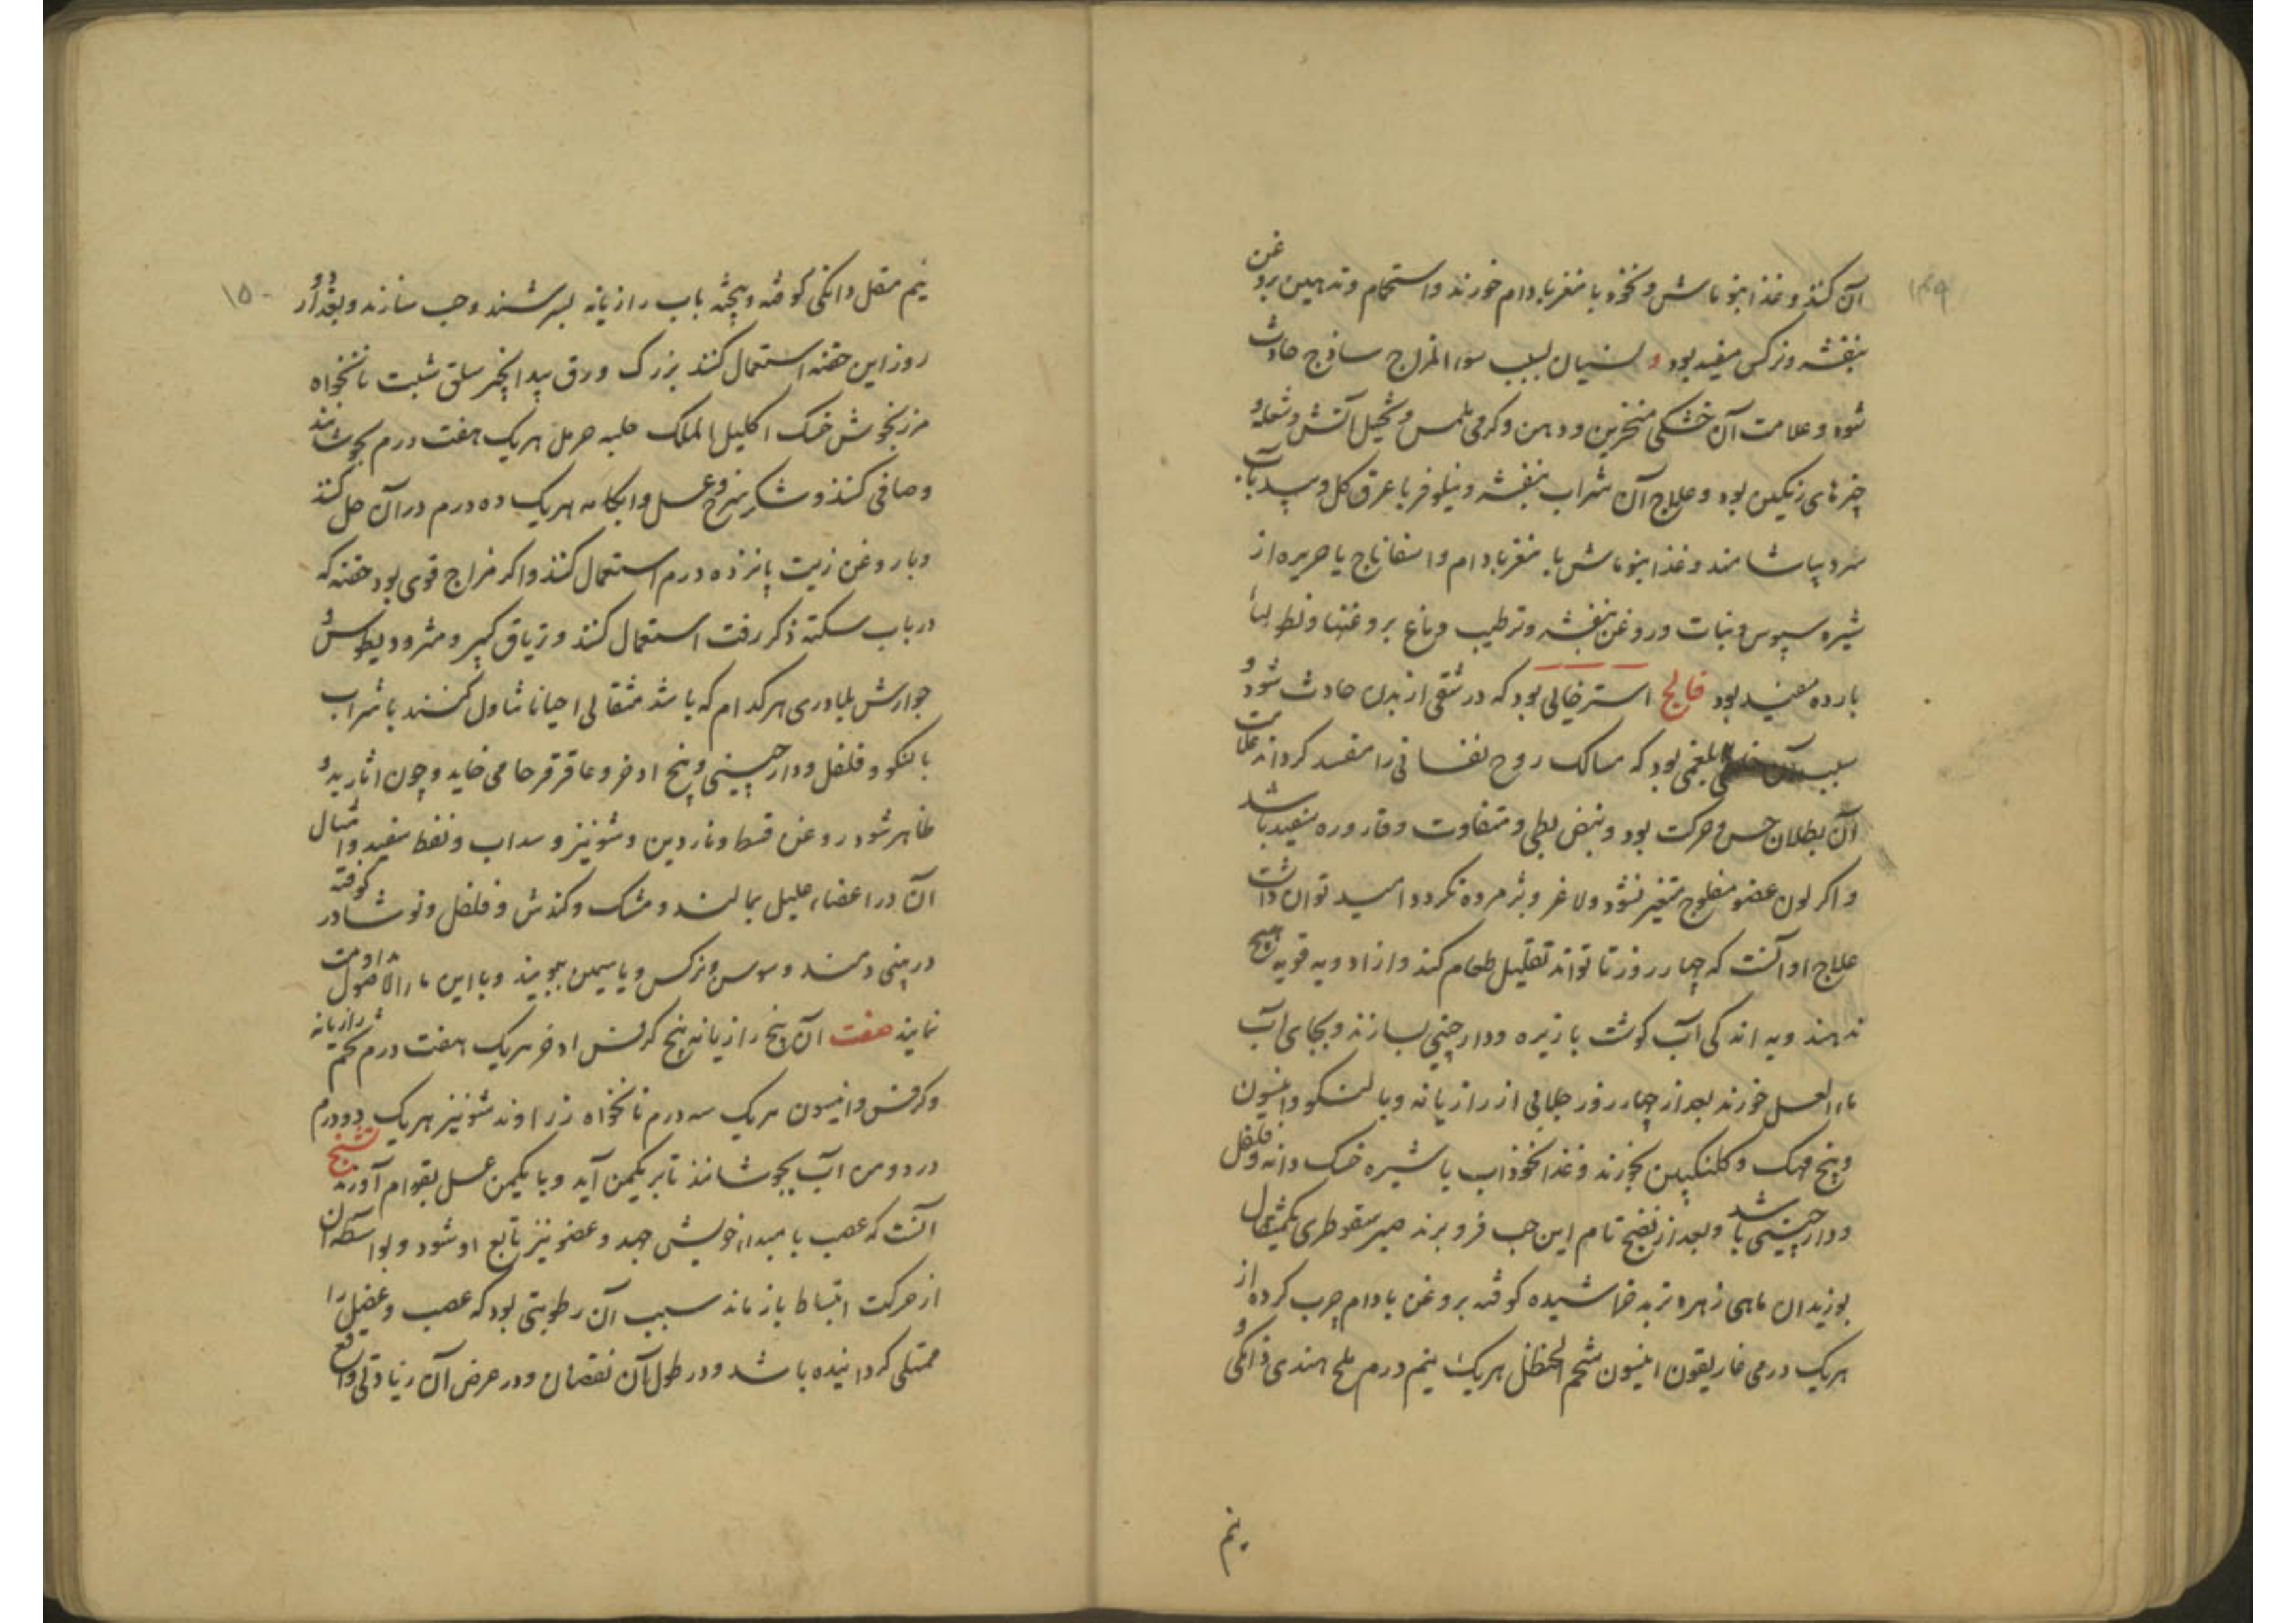 ۱۴۹
آن کنند و غذا بنو ماش و نخود با مغز بادام خورند و استحمام و تدهین بروغن
بنفشه و نرکس مفید بود و نسیان بسبب سوء المزاج ساذج حادث
شود و علامت آن خشکی منخرین و دهن و کرمی ملمس و تخیل آتش و شعله و
چیزهای رنکین بود و علاج آن شراب بنفشه و نیلوفر با عرق کل و بید بآب
سرد بیاشامند و غذا بنو ماش با مغز بادام و اسفاناج یا حریره از
شیره سبوس و نبات و روغن بنفشه و ترطیب دماغ بروغنها و نطولهاء
بارده مفید بود فالج استرخائی بود که در شقی از بدن حادث شود و
سبب آن بلغمی بود که مسالک روح نفسانی را منسد کرداند علامت
آن بطلان حس و حرکت بود و نبض بطی و متفاوت و قاروره سفید باشد
و اکر لون عضو مفلوج متغیر نشود و لاغر و پژمرده نکردد امید توان داشت
علاج او آنست که چهار روز تا تواند تقلیل طعام کند و از ادویه قویه هیچ
ندهند و به اندکی آب کوشت با زیره و دارچینی بسازند و بجای آب
ماء العسل خورند بعد از چهار روز جلابی از رازیانه و بالنکو و انیسون
و بیخ مهک و کلنکبین بخورند و غذا نخوداب با شیره خسک دانه و فلفل
و دارچینی باشد و بعد از نضج تام این حب فرو برند صبر سقوطری یکمثقال
بوزیدان ماهی زهره تربد خراشیده کوفته بروغن بادام چرب کرده از
هریک درمی غاریقون انیسون شحم الحنظل هریک نیم درم ملح هندی دانکی و
نیم
۱۵۰
نیم مقل دانکی کوفته و بیخته بآب رازیانه بسرشند و حب سازند و بعد از دو
روز این حقنه استعمال کنند بزرک ورق بید انجیر سلق شبت نانخواه
مرزنجوش خسک اکلیل الملک حلبه حرمل هریک هفت درم بجوشانند
و صافی کنند و شکر سرخ و عسل و ابکامه هریک ده درم در آن حل کنند
و با روغن زیت پانزده درم استعمال کنند و اکر مزاج قوی بود حقنه که
در باب سکته ذکر رفت استعمال کنند و تریاق کبیر و مثرودیطوس و
جوارش بلادری هرکدام که باشد مثقالی احیانا تناول کنند با شراب
بالنکو و فلفل و دارچینی و بیخ اذخر و عاقرقرحا می خاید و چون آثار بدو
ظاهر شود روغن قسط و ناردین و شونیز و سداب و نفط سفید و امثال
آن در اعضاء علیل بمالند و مشک و کندش و فلفل و نوشادر کوفته
در بینی دمند و سوسن و نرکس و یاسیمن ببویند و با این ماء الاصول مداومت
نمایند صفت آن بیخ رازیانه بیخ کرفس اذخر هریک هفت درم تخم رازیانه
و کرفس و انیسون هریک سه درم نانخواه زراوند شونیز هریک دو درم
در دو من آب بجوشانند تا بر یکمن آید و با یکمن عسل بقوام آورند تشنج
آنست که عصب با مبداء خویش جهد و عضو نیز تابع او شود و بواسطه آن
از حرکت انبساط باز ماند سبب آن رطوبتی بود که عصب و عضل را
ممتلی کردانیده باشد و در طول آن نقصان و در عرض آن زیادتی واقع